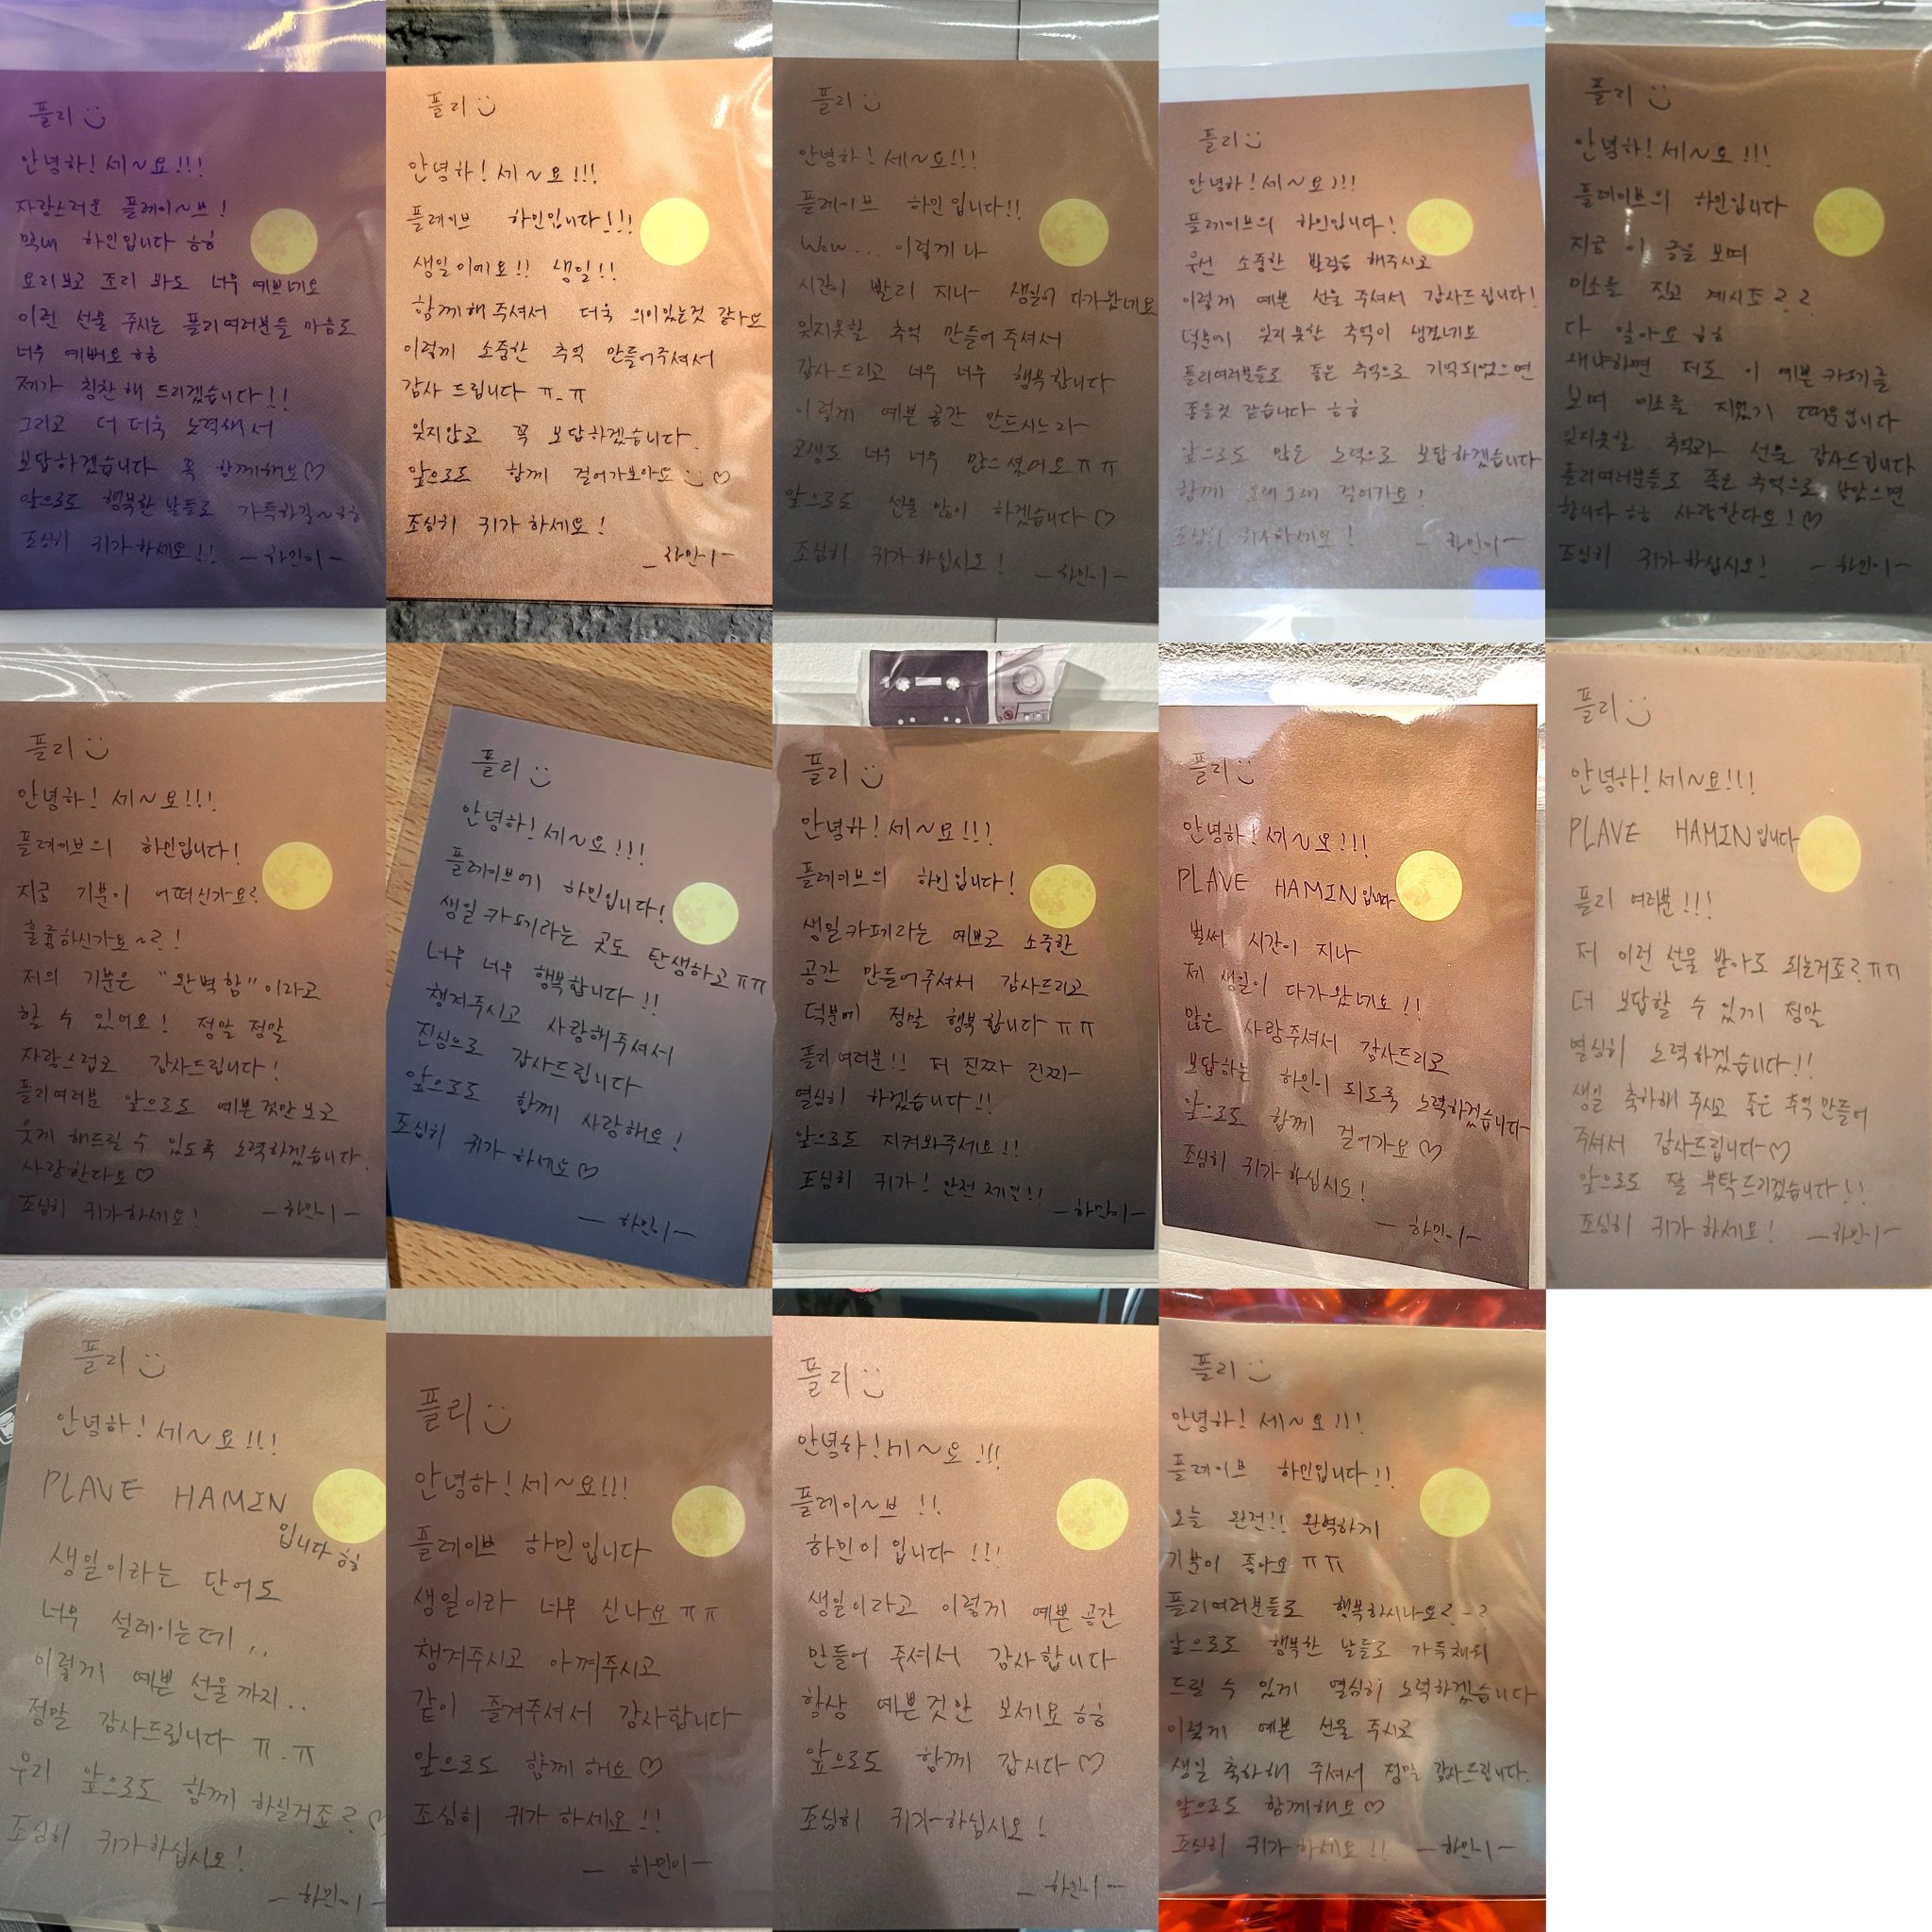 플리
안녕하!세~요!!!
자랑스러운 플레이~브!
막내 하민입니다 ㅎㅎ
요리보고 조리 봐도 너무 예쁘네요
이런 선물 주시는 플리여러분들 마음도
너무 예뻐요 ㅎㅎ
제가 칭찬해 드리겠습니다!!
그리고 더 더욱 노력해서
보답하겠습니다 꼭 함께해요♡
앞으로도 행복한 날들로 가득하길~ㅎㅎ
조심히 귀가하세요!! -하민이-
플리
안녕하!세~요!!!
플레이브 하민입니다!!!
생일이에요!! 생일!!
함께해주셔서 더욱 의미있는것 같아요
이렇게 소중한 추억 만들어주셔서
감사 드립니다 ㅠ_ㅠ
잊지않고 꼭 보답하겠습니다.
앞으로도 함께 걸어가보아요 ♡
조심히 귀가 하세요!
-하민이-
플리
안녕하!세~요!!!
플레이브 하민입니다!!
Wow... 이렇게나
시간이 빨리 지나 생일이 다가왔네요
잊지못할 추억 만들어 주셔서
감사드리고 너무 너무 행복합니다
이렇게 예쁜 공간 만드시느라
고생도 너무 너무 많으셨어요 ㅠㅠ
앞으로도 선물 많이 하겠습니다♡
조심히 귀가하십시오! -하민이-
플리
안녕하!세~요!!!
플레이브의 하민입니다!
우선 소중한 발걸음 해주시고
이렇게 예쁜 선물 주셔서 감사드립니다!
덕분에 잊지못할 추억이 생겼네요
플리여러분들도 좋은 추억으로 기억되었으면
좋을것 같습니다 ㅎㅎ
앞으로도 많은 노력으로 보답하겠습니다
함께 오래오래 걸어가요!
조심히 귀가하세요! -하민이-
플리
안녕하!세~요!!!
플레이브의 하민입니다
지금 이 글을 보며
미소를 짓고 계시죠??
다 알아요 ㅎㅎ
왜냐하면 저도 이 예쁜 카페를
보며 미소를 지었기 때문입니다
잊지못할 추억과 선물 감사드립니다
플리여러분들도 좋은 추억으로 남았으면
합니다 ㅎㅎ 사랑한다요!♡
조심히 귀가하십시오! -하민이-
플리
안녕하!세~요!!!
플레이브의 하민입니다!
지금 기분이 어떠신가요?
훌륭하신가요~?!
저의 기분은 "완벽함"이라고
할 수 있어요! 정말 정말
자랑스럽고 감사드립니다!
플리여러분 앞으로도 예쁜것만 보고
웃게 해드릴 수 있도록 노력하겠습니다.
사랑한다요♡
조심히 귀가하세요! -하민이-
플리
안녕하!세~요!!!
플레이브에 하민입니다!
생일카페라는 곳도 탄생하고 ㅠㅠ
너무 너무 행복합니다!!
챙겨주시고 사랑해주셔서
진심으로 감사드립니다
앞으로도 함께 사랑해요!
조심히 귀가 하세요♡
- 하민이-
플리
안녕하!세~요!!!
플레이브의 하민입니다!
생일카페라는 예쁘고 소중한
공간 만들어주셔서 감사드리고
덕분에 정말 행복합니다 ㅠㅠ
플리 여러분!! 저 진짜 진짜
열심히 하겠습니다!!
앞으로도 지켜봐주세요!!
조심히 귀가! 안전 제일!! -하민이-
플리
안녕하!세~요!!!
PLAVE HAMIN입니다
벌써 시간이 지나
제 생일이 다가왔네요!!
많은 사랑주셔서 감사드리고
보답하는 하민이 되도록 노력하겠습니다
앞으로도 함께 걸어가요♡
조심히 귀가하십시오!
- 하민이-
플리
안녕하!세~요!!!
PLAVE HAMIN입니다
플리 여러분!!!
저 이런 선물 받아도 되는거죠? ㅠㅠ
더 보답할 수 있게 정말
열심히 노력하겠습니다!!
생일 축하해 주시고 좋은 추억 만들어
주셔서 감사드립니다♡
앞으로도 잘 부탁드리겠습니다!!
조심히 귀가 하세요! -하민이-
플리
안녕하!세~요!!!
PLAVE HAMIN
입니다 ㅎㅎ
생일이라는 단어도
너무 설레이는데..
이렇게 예쁜 선물까지..
정말 감사드립니다 ㅠ_ㅠ
우리 앞으로도 함께 하실거죠?♡
조심히 귀가하십시오!
-하민이-
플리
안녕하!세~요!!!
플레이브 하민입니다
생일이라 너무 신나요 ㅠㅠ
챙겨주시고 아껴주시고
같이 즐겨주셔서 감사합니다
앞으로도 함께 해요♡
조심히 귀가 하세요!!
- 하민이-
플리
안녕하!세~요!!!
플레이~브!!
하민이 입니다!!!
생일이라고 이렇게 예쁜 공간
만들어 주셔서 감사합니다
항상 예쁜것만 보세요 ㅎㅎ
앞으로도 함께 갑시다♡
조심히 귀가하십시오!
- 하민이-
플리
안녕하!세~요!!!
플레이브 하민입니다!!
오늘 완전!! 완벽하게
기분이 좋아요 ㅠㅠ
플리여러분들도 행복하시나요?-?
앞으로도 행복한 날들로 가득채워
드릴 수 있게 열심히 노력하겠습니다
이렇게 예쁜 선물 주시고
생일 축하해 주셔서 정말 감사드립니다.
앞으로도 함께해요♡
조심히 귀가하세요!! -하민이-